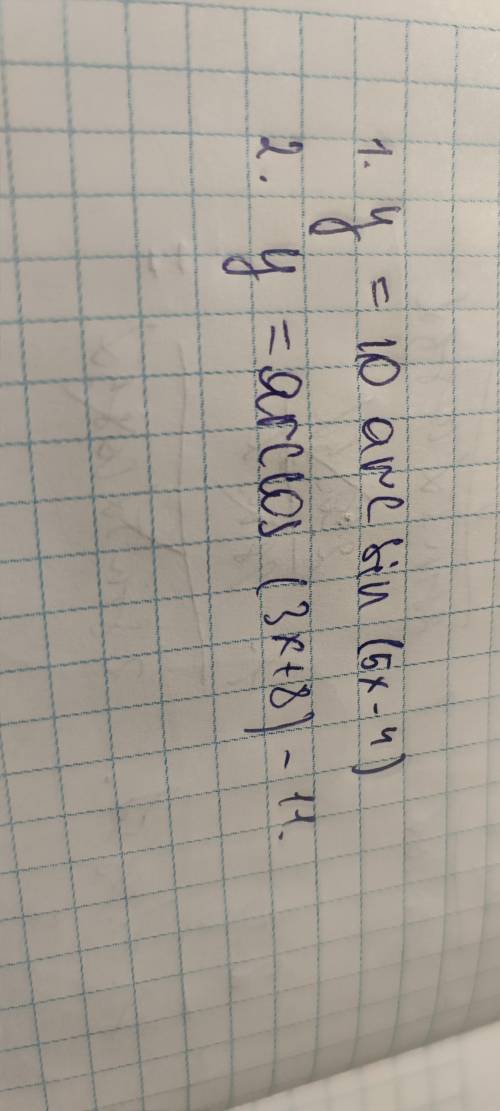 1. y = 10 arc sin (5x - 4)
2. y = arccos (3x+8) - 11.